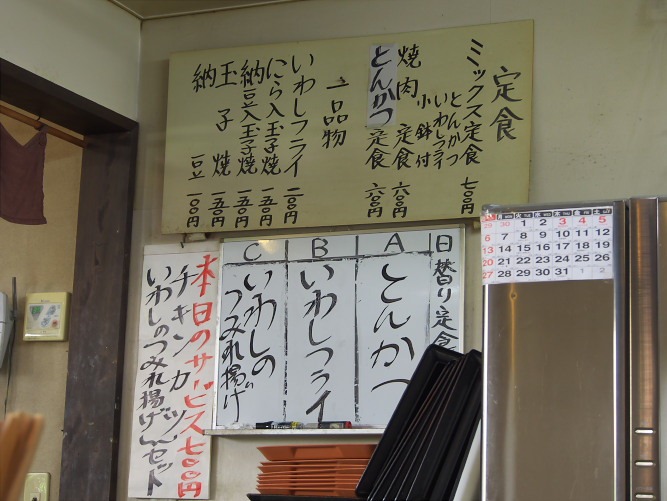 定食
ミックス定食 七〇〇円
とんかつ
いわしフライ
小鉢付
焼肉定食 六〇〇円
とんかつ定食 六〇〇円
一品物
いわしフライ 二〇〇円
にら入玉子焼 一五〇円
納豆入玉子焼 一五〇円
玉子焼 一五〇円
納豆 一〇〇円
日替り定食
A とんかつ
B いわしフライ
C いわしの
つみれ揚げ
本日のサービス七〇〇円
チキンカツ
いわしのつみれ揚げ セット
日 月 火 水 木 金 土
29 30 1 2 3 4 5
6 7 8 9 10 11 12
13 14 15 16 17 18 19
20 21 22 23 24 25 26
27 28 29 30 31 1 2